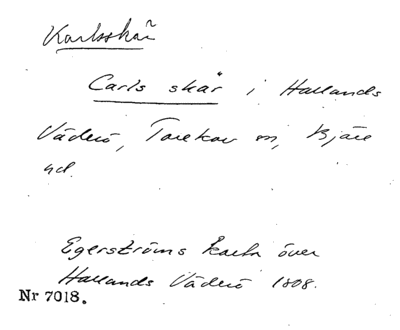 Karlsskär
Carls skär i Hallands
Väderö, Torekov sn, Bjäre
hd.
Egerströms karta över
Hallands Väderö 1808.
Nr 7018.